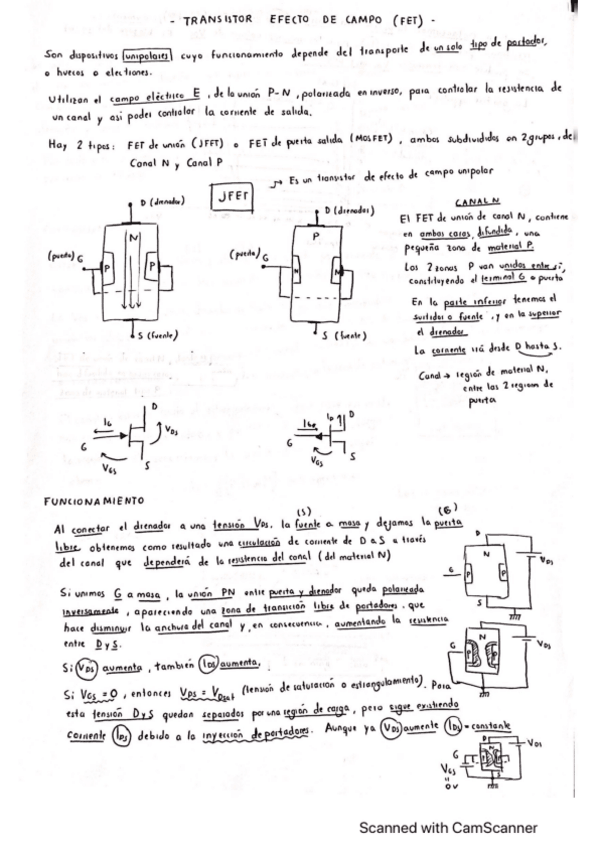 - TRANSISTOR EFECTO DE CAMPO (FET) -
Son dispositivos unipolares cuyo funcionamiento depende del transporte de un solo tipo de portador,
o huecos o electrones.
Utilizan el campo eléctrico E, de la unión P-N, polarizada en inverso, para controlar la resistencia de
un canal y así poder controlar la corriente de salida.
Hay 2 tipos: FET de unión (JFET) o FET de puerta salida (MOSFET), ambos subdivididos en 2 grupos, de
Canal N y Canal P
JFET
→ Es un transistor de efecto de campo unipolar
D (drenador)
N
(puerta) G
P
P
S (fuente)
D (drenador)
P
(puerta) G
N
N
S (fuente)
CANAL N
El FET de unión de canal N, contiene
en ambas caras, difundida, una
pequeña zona de material P.
Las 2 zonas P van unidas entre sí,
constituyendo el terminal G o puerta
En la parte inferior tenemos el
surtidor o fuente, y en la superior
el drenador
La corriente irá desde D hasta S.
Canal → región de material N,
entre las 2 regiones de
puerta
IG
D
VDS
G
VGS
S
ID
D
G
VGS
S
FUNCIONAMIENTO
(S)
(G)
Al conectar el drenador a una tensión VDS, la fuente a masa y dejamos la puerta
libre, obtenemos como resultado una circulación de corriente de D a S a través
del canal que dependerá de la resistencia del canal (del material N)
D
N
G
P
P
S
VDS
Si unimos G a masa, la unión PN entre puerta y drenador queda polarizada
inversamente, apareciendo una zona de transición libre de portadores, que
hace disminuir la anchura del canal y, en consecuencia, aumentando la resistencia
entre D y S.
D
N
G
P
P
S
VDS
Si VDS aumenta, también IDS aumenta.
Si VGS = 0, entonces VDS = VDsat (tensión de saturación o estrangulamiento). Para
esta tensión D y S quedan separados por una región de carga, pero sigue existiendo
corriente IDS debido a la inyección de portadores. Aunque ya VDS aumente IDS = constante
D
N
G
VDS
VGS
=
0V
Scanned with CamScanner